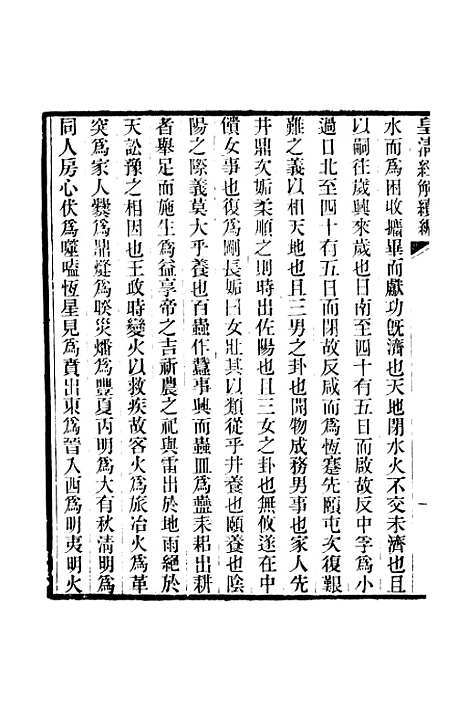 皇清經解續編
水而爲困收攟畢而獻功旣濟也天地閉水火不交未濟也且
以嗣往歲興來歲也日南至四十有五日而啟故反中孚爲小
過日北至四十有五日而閉故反咸而爲恆蹇先頤屯次復艱
難之義以相天地也且三男之卦也開物成務男事也家人先
井鼎次姤柔順之則時出佐陽也且三女之卦也無攸遂在中
饋女事也復爲剛長姤曰女壯其以類從乎井養也頤養也陰
陽之際義莫大乎養也百蟲作蠶事興而蟲皿爲蠱耒耜出耕
者舉足而施生爲益享帝之吉祈農之祀與雷出於地雨絕於
天訟豫之相因也王政時變火以救疾故客火爲旅冶火爲革
突爲家人爨爲鼎燧爲睽災燔爲豐夏丙明爲大有秋清明爲
同人房心伏爲噬嗑恆星見爲賁出東爲晉入西爲明夷明火